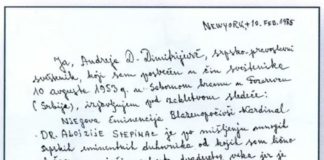 NEWYORK, 10. FEB. 1985
Ja, Andreja D. Dimitrijević, srpsko-pravoslavni
sveštenik, koji sam posvećen u čin sveštenika
10 avgusta 1953 g. u Sabornom hramu u
(Srbije), izjavljujem pod zakletvom sledeće:
Njegova Eminencija Blaženopočivši Kardinal
DR. ALOJZIJE STEPINAC je po mišljenju mnogih
srpskih eminentnih duhovnika od kojih sam